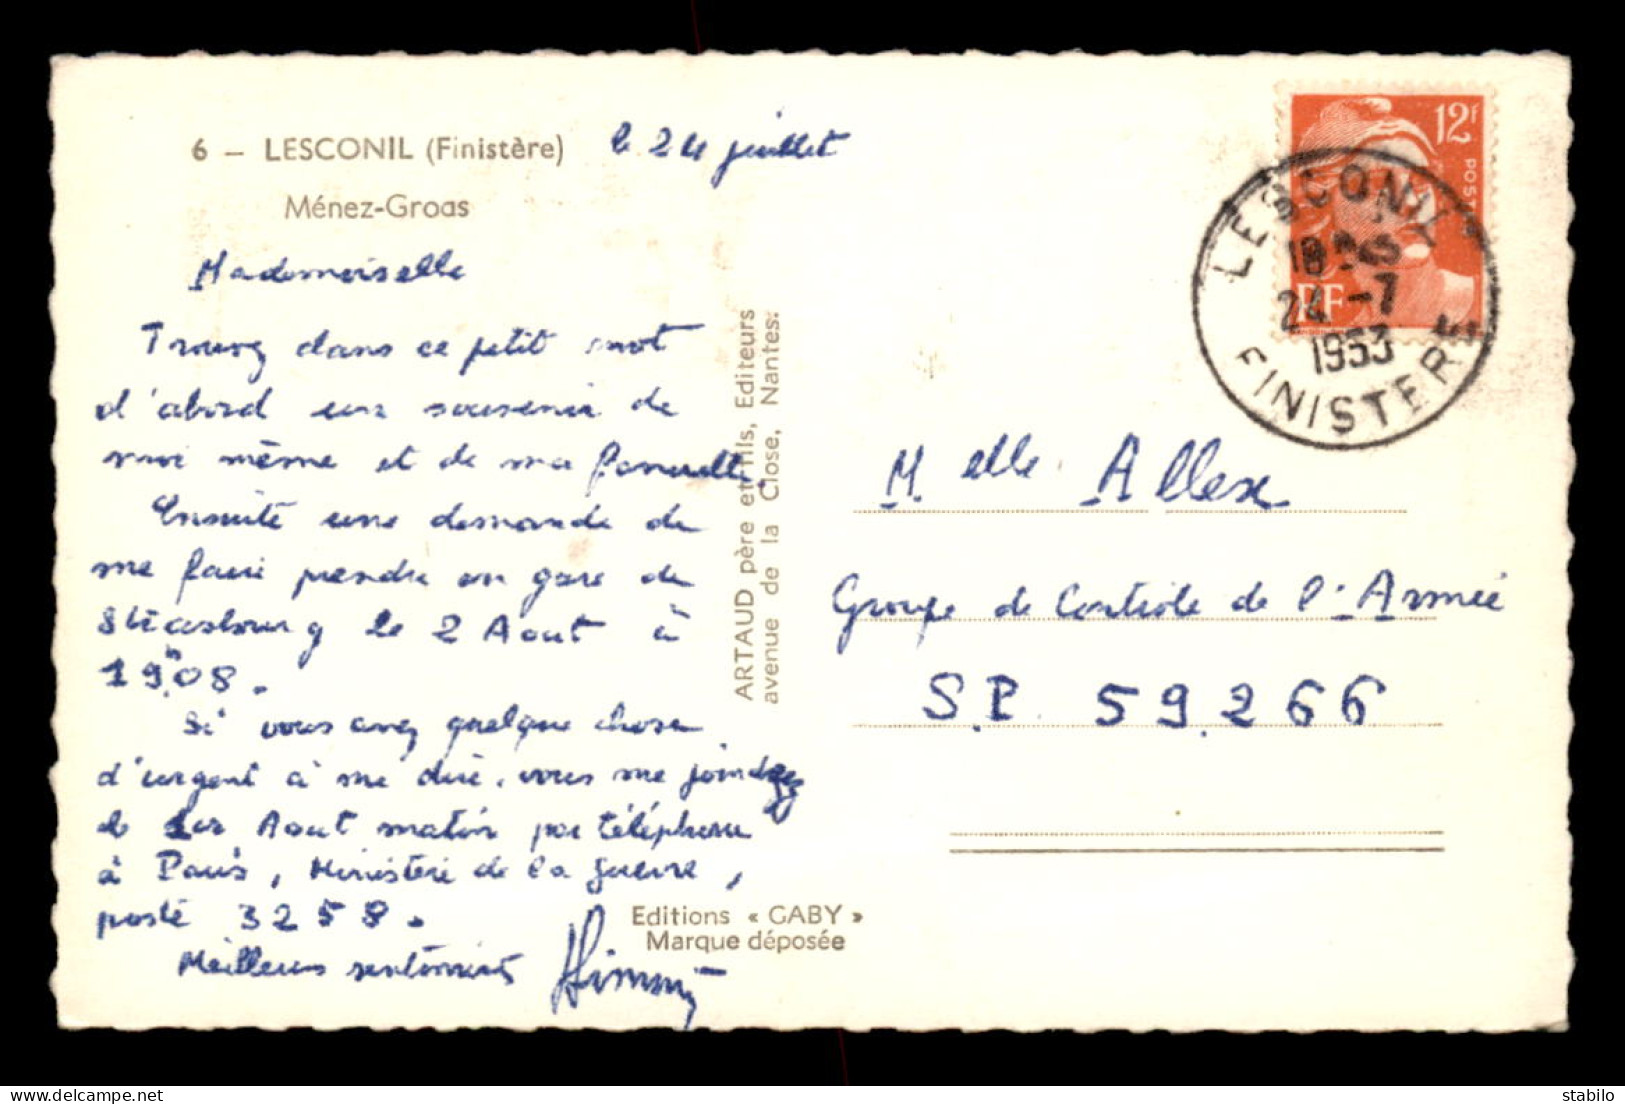 6 – LESCONIL (Finistère) le 24 juillet
Ménez-Groas
Mademoiselle
Trouvez dans ce petit mot
d'abord un souvenir de
moi même et de ma famille.
Ensuite une demande de
me faire prendre en gare de
Strasbourg le 2 Aout à
19h08.
Si vous avez quelque chose
d'urgent à me dire, vous me joindrez
le 1er Aout matin par téléphone
à Paris, Ministère de la guerre,
poste 3258.
Meilleurs sentiments
ARTAUD père et fils, Editeurs
avenue de la Close, Nantes.
Editions « GABY »
Marque déposée
12f
POSTES
RF
LESCONIL
18h45
24 -7
1953
FINISTERE
Melle Allex
Groupe de Controle de l'Armée
S.P. 59.266
delcampe.net
stabilo